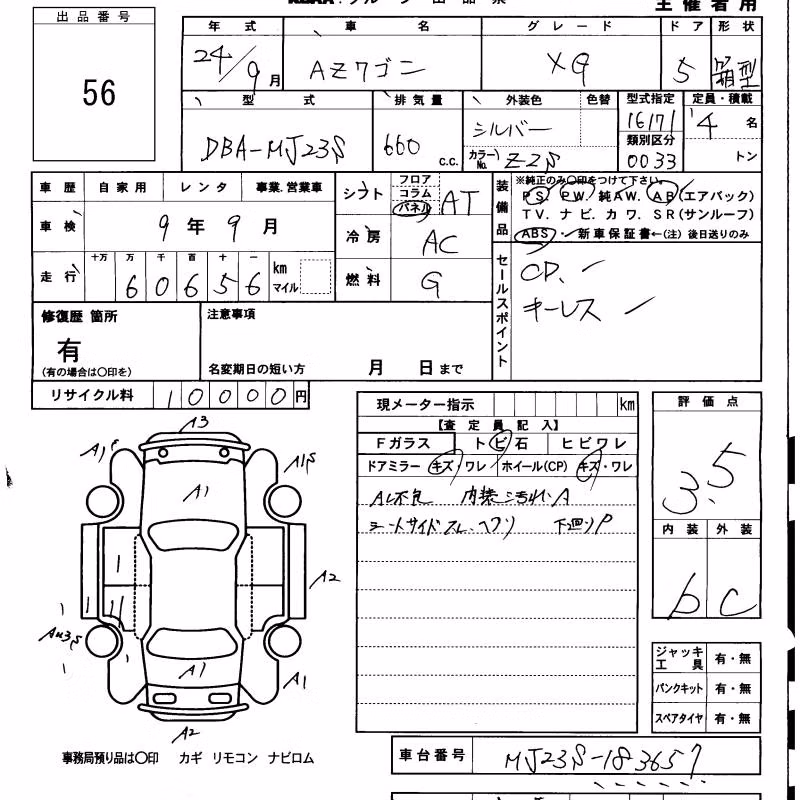 主催者用
出品番号
56
年式 車名 グレード ドア 形状
24/9月 AZワゴン XG 5 箱型
型式 排気量 外装色 色替 型式指定 定員・積載
DBA-MJ23S 660 c.c. シルバー 16171 4名
類別区分
カラーNo. Z2S 0033 トン
車歴 自家用 レンタ 事業.営業車
シフト フロア コラム パネル AT
装備品
※純正のみ○印をつけて下さい。
PS PW. 純AW. AB(エアバック)
TV. ナビ. カワ. SR(サンルーフ)
ABS・新車保証書←(注) 後日送りのみ
車検 9年9月
冷房 AC
走行 十万 万 千 百 十 一 km マイル
60656
燃料 G
セールスポイント
CD.
キーレス
修復歴 箇所
有
(有の場合は○印を)
注意事項
名変期日の短い方 月 日まで
リサイクル料 10000円
現メーター指示 km
【査定員記入】
Fガラス トビ石 ヒビワレ
ドアミラー キズ・ワレ ホイール(CP) キズ・ワレ
内装ﾖｺﾞﾚ A
シートサイドスレ
下廻りP
評価点
3.5
内装 外装
b C
A3
A1S
A1
1
A2
A1
A1
A2
ジャッキ工具 有・無
パンクキット 有・無
スペアタイヤ 有・無
事務局預り品は○印 カギ リモコン ナビロム
車台番号 MJ23S-183657